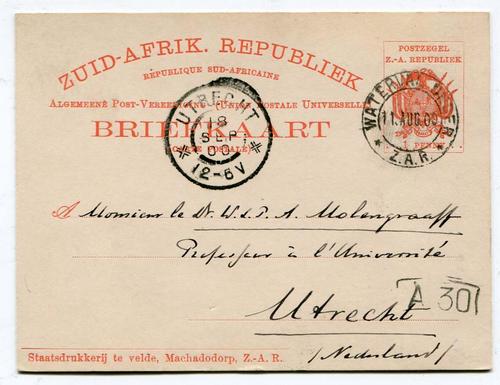 ZUID-AFRIK. REPUBLIEK
REPUBLIQUE SUD-AFRICAINE
POSTZEGEL
Z.-A. REPUBLIEK
ALGEMEENE POST-VEREENIGING (UNION POSTALE UNIVERSELLE)
BRIEFKAART
(CARTE POSTALE)
1 PENNY
UTRECHT
18
SEP
00
12-6V
11.AUG.00
Z.A.R.
A Monsieur le Dr. W. A. Molengraaff
Professeur à l'Université
Utrecht
A 30
(Nederland)
Staatsdrukkerij te velde, Machadodorp, Z.-A. R.